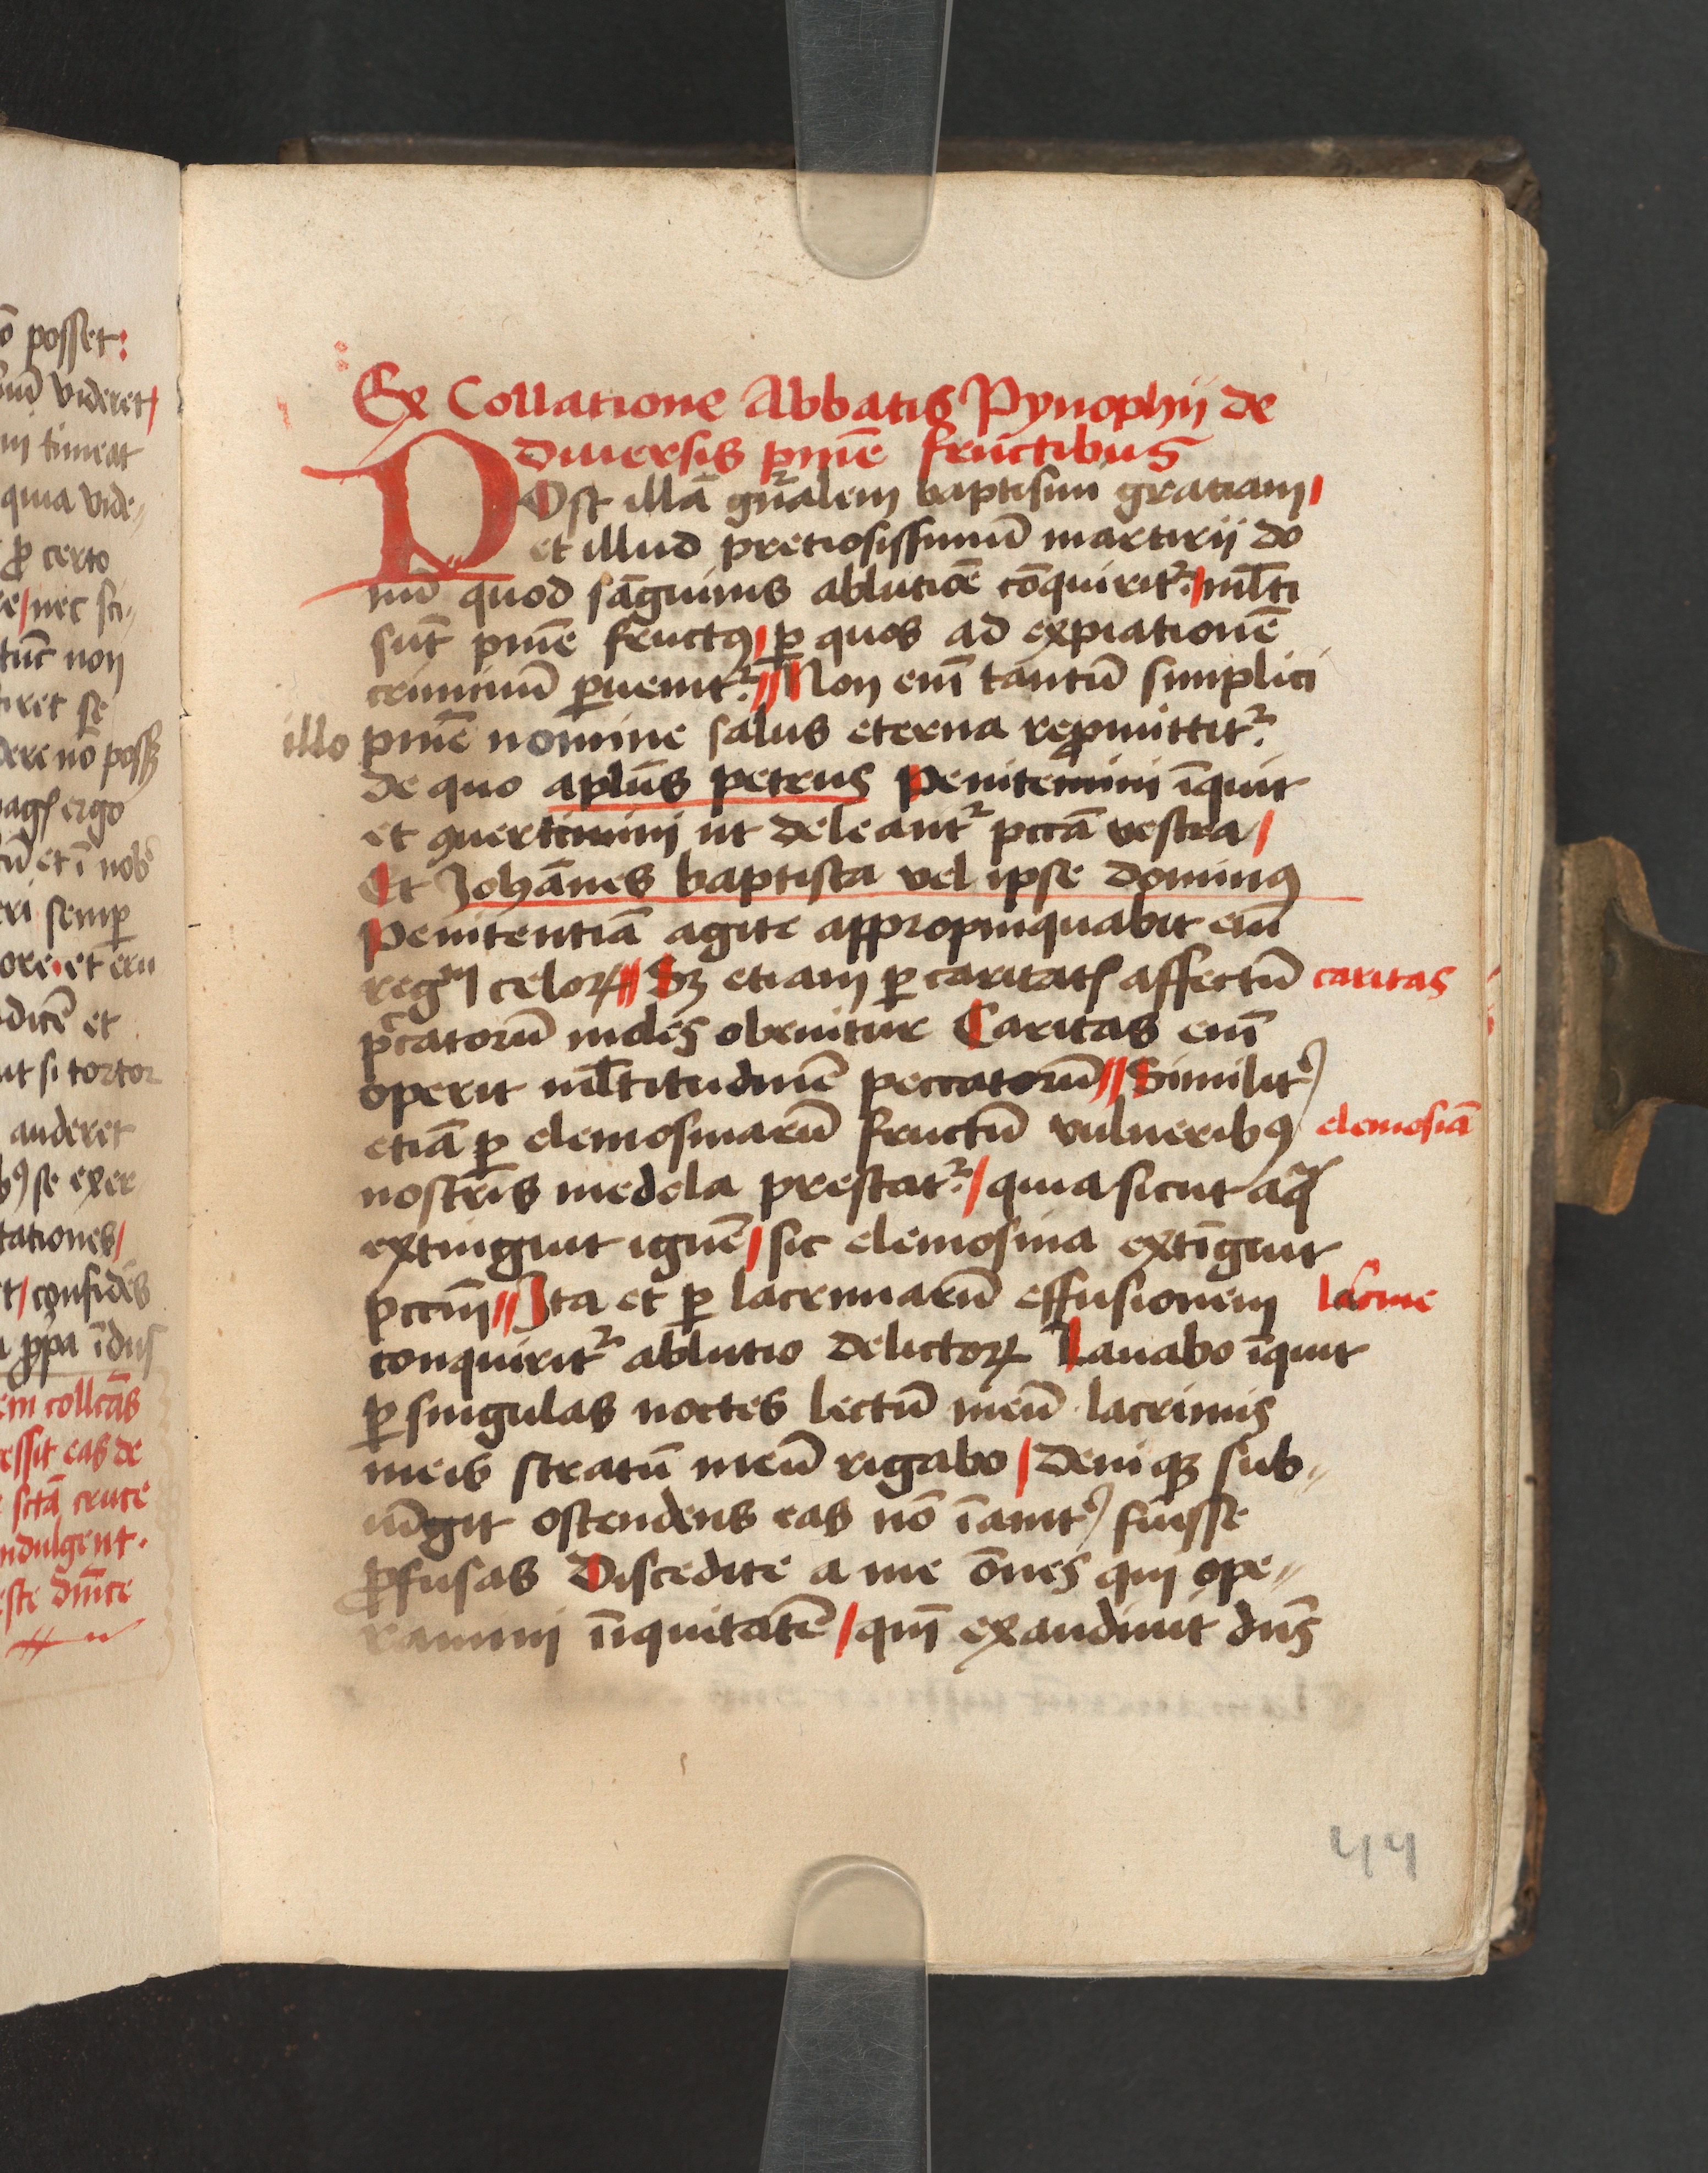 ō posset:
uid videret/
in timeat
quia vide„
pro certo
re/nec sci„
tūc non
iret se
dere nō possꝫ
ergo
ū et ī nob
eri semp
ore·et eru
dicē et
ut si tortor
auderet
bꝰ se exer
tationes/
t/confidēs
em collcās
essit eas de
sctā cruce
indulgent.
este dnīce
Ex Collatione Abbatis Pynophii de
diuersis pnīe fructibus
POst illā gnr̄alem baptismi gratiam/
et illud pretiosissimū martirii do
nū quod sāguinis ablutiōe cōquirit᷑:/ml̄ti
sūt pnīe fructꝰ/ꝑ quos ad expiationē
criminū ꝑuenit᷑://Non enī tantū simplici
illo pnīe nomine salus eterna reꝓmittit᷑:
de quo apl̄us petrus Penitemini īquit
et ꝯuertimini ut deleant᷑ pccā vestra/
Et Johānes baptista vel ipse dominꝰ
Penitentiā agite appropinquabit enī
regᵐ celoꝝ// Sꝫ etiam ꝑ caritatꝭ affectū caritas
pctatorū moles obruitur Caritas enī
operit ml̄titudinē peccatorū//Similitꝰ
etiā ꝑ elemosinarū fructū vulneribꝰ elemosiā
nostris medela prestat᷑:/quia sicut aqᷓ
extinguit ignē/sic elemosina extīguit
pccm̄//Ita et ꝑ lacrimarū effusionem lacrme
conquirit᷑ ablutio delictoꝝ Lauabo īquit
ꝑ singulas noctes lectū meū lacrimis
meis stratū meū rigabo/Deniqꝫ sub„
iūgit ostendens eas nō īanitꝰ fuisse
ꝓfusas Discedite a me ōnes qui ope„
ramini īiquitatē/qm̄ exaudiuit dn̄s
44